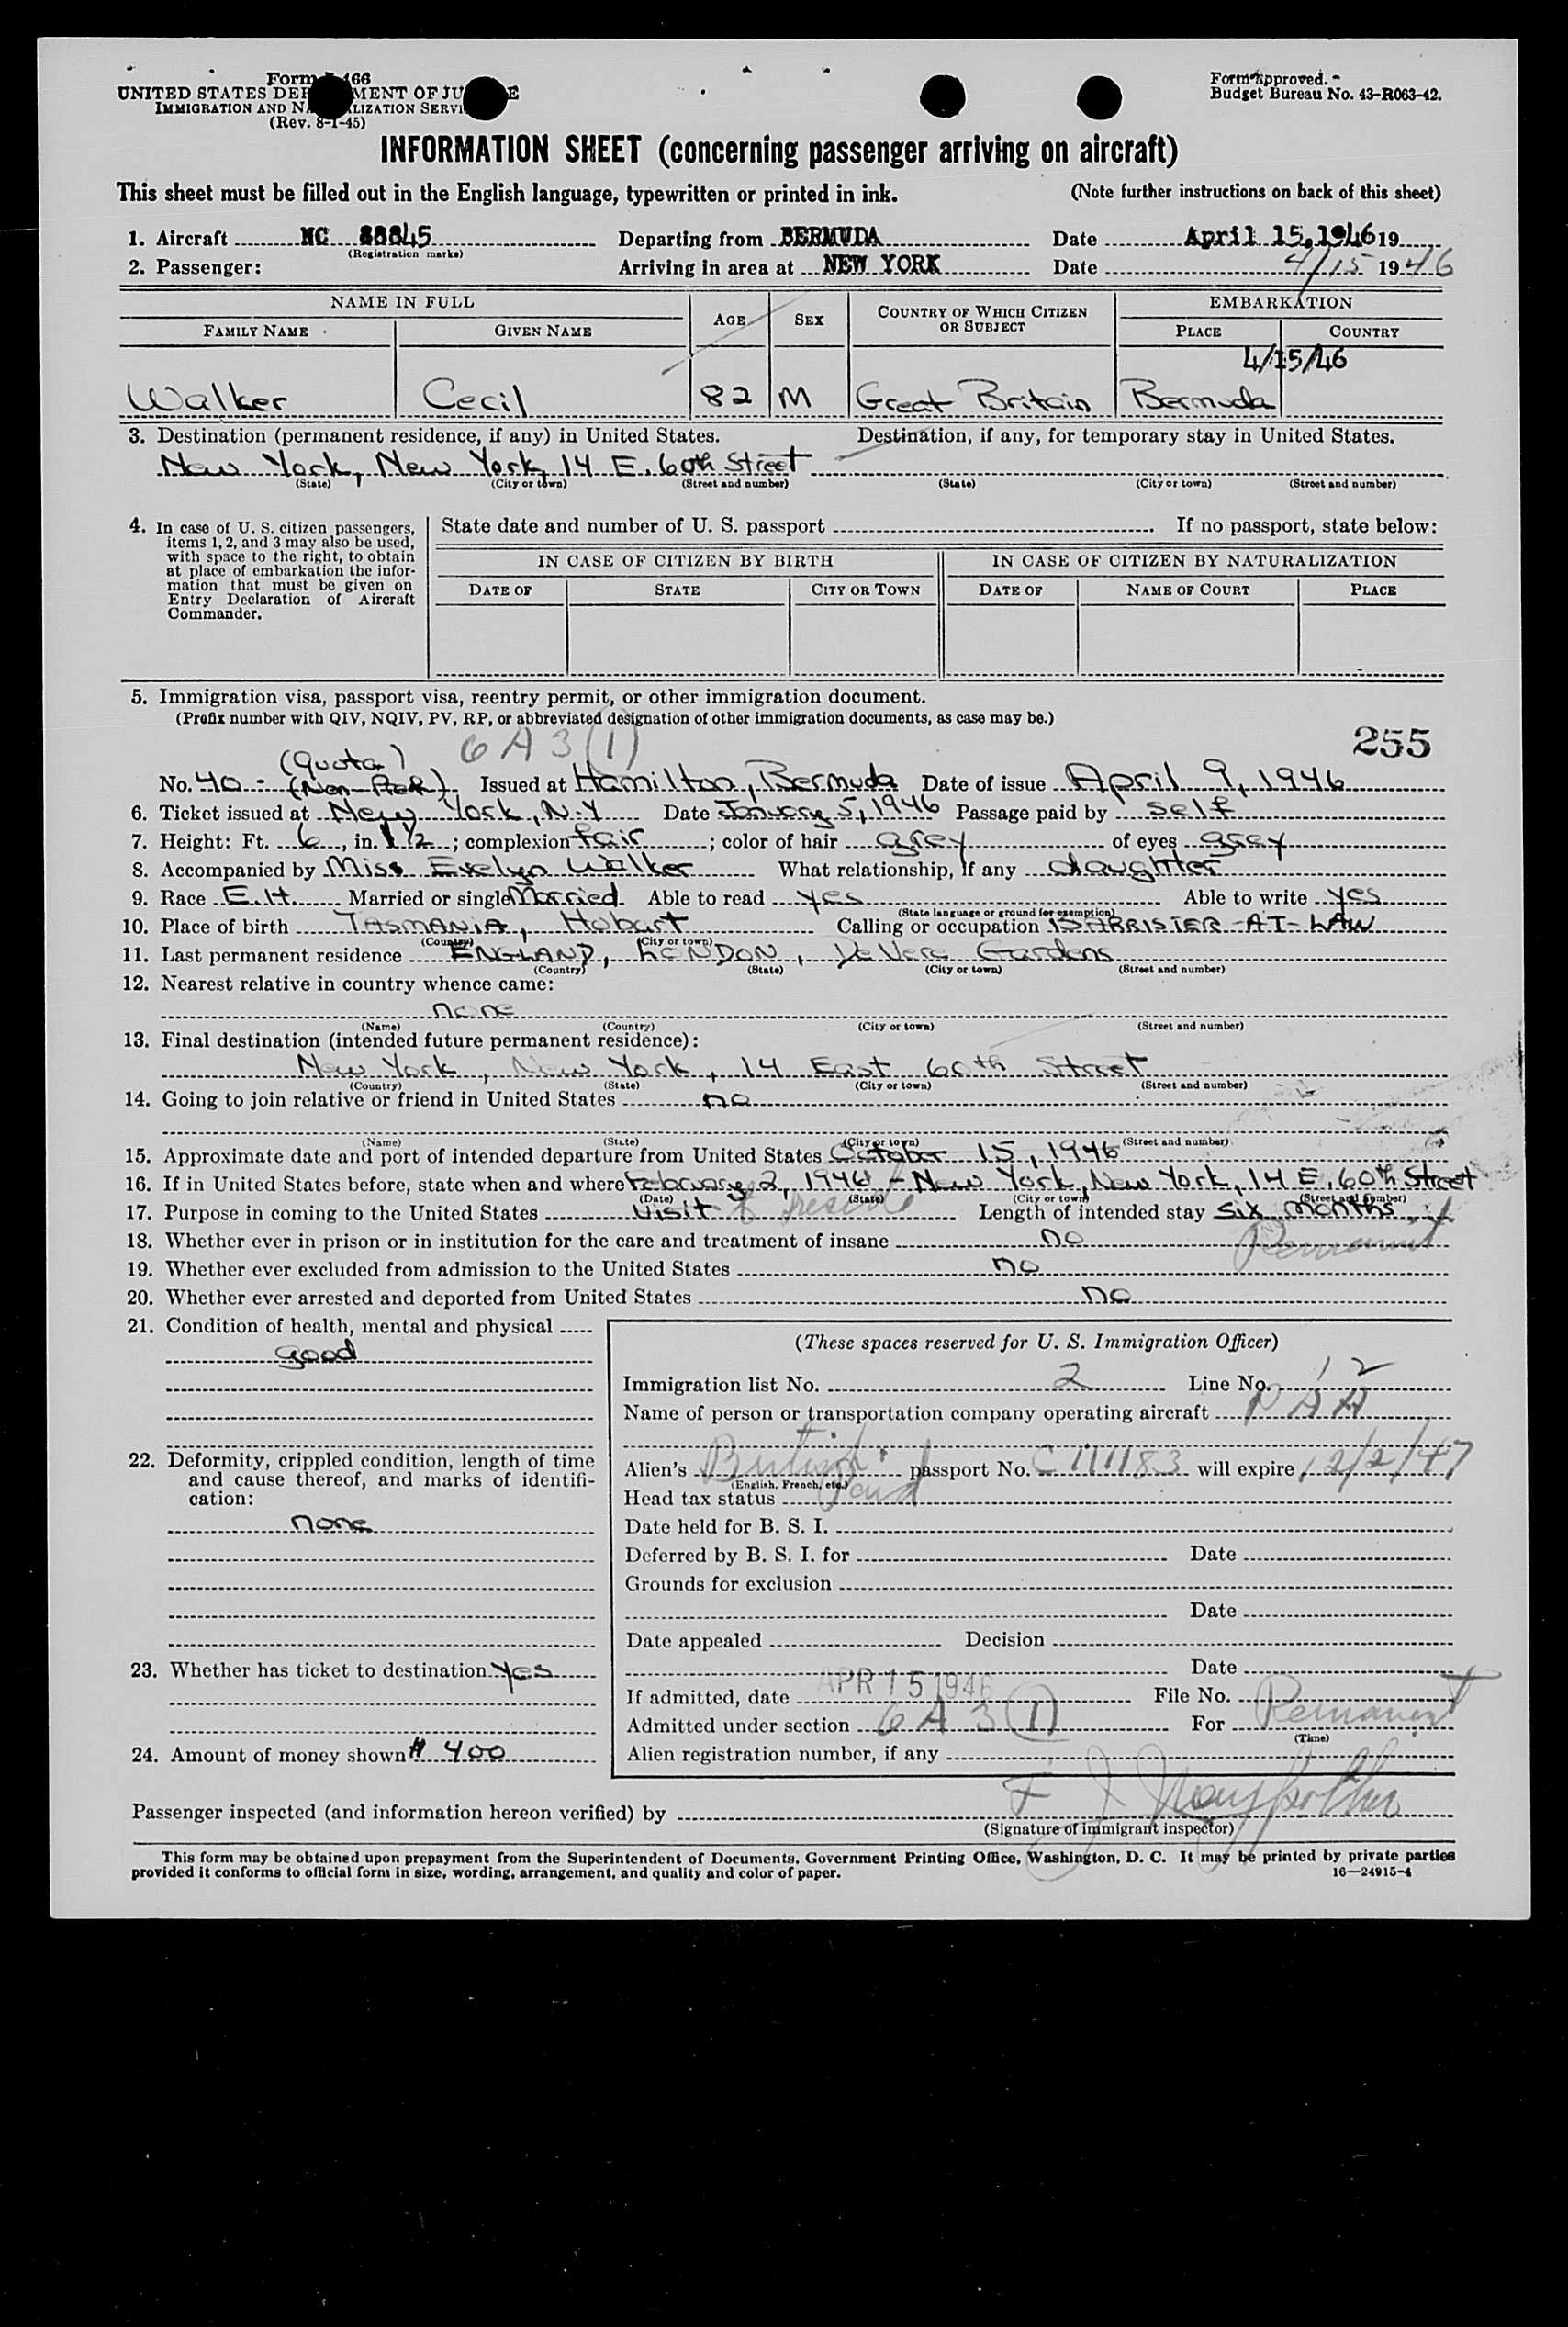 Form 466
UNITED STATES DEPARTMENT OF JUSTICE
IMMIGRATION AND NATURALIZATION SERVICE
(Rev. 8-1-45)
Form approved.
Budget Bureau No. 43-R063-42.
INFORMATION SHEET (concerning passenger arriving on aircraft)
This sheet must be filled out in the English language, typewritten or printed in ink. (Note further instructions on back of this sheet)
1. Aircraft NC 88845 Departing from BERMUDA Date April 15, 1946 19
(Registration marks)
2. Passenger: Arriving in area at NEW YORK Date 4/15 1946
NAME IN FULL AGE SEX COUNTRY OF WHICH CITIZEN OR SUBJECT EMBARKATION
FAMILY NAME GIVEN NAME PLACE COUNTRY
4/15/46
Walker Cecil 82 M Great Britain Bermuda
3. Destination (permanent residence, if any) in United States. Destination, if any, for temporary stay in United States.
New York, New York, 14 E. 60th Street
(State) (City or town) (Street and number) (State) (City or town) (Street and number)
4. In case of U. S. citizen passengers, items 1, 2, and 3 may also be used, with space to the right, to obtain at place of embarkation the information that must be given on Entry Declaration of Aircraft Commander.
State date and number of U. S. passport If no passport, state below:
IN CASE OF CITIZEN BY BIRTH IN CASE OF CITIZEN BY NATURALIZATION
DATE OF STATE CITY OR TOWN DATE OF NAME OF COURT PLACE
5. Immigration visa, passport visa, reentry permit, or other immigration document.
(Prefix number with QIV, NQIV, PV, RP, or abbreviated designation of other immigration documents, as case may be.)
6 A 3 (1) 255
(Quota)
No. 40 - Issued at Hamilton, Bermuda Date of issue April 9, 1946
6. Ticket issued at New York, N.Y Date January 5, 1946 Passage paid by self
7. Height: Ft. 6, in. 1 1/2; complexion fair; color of hair grey of eyes grey
8. Accompanied by Miss Evelyn Walker What relationship, if any daughter
9. Race E.H. Married or single Married Able to read yes Able to write yes
(State language or ground for exemption)
10. Place of birth TASMANIA, Hobart Calling or occupation BARRISTER-AT-LAW
(Country) (City or town)
11. Last permanent residence ENGLAND, LONDON, DeVere Gardens
(Country) (State) (City or town) (Street and number)
12. Nearest relative in country whence came:
none
(Name) (Country) (City or town) (Street and number)
13. Final destination (intended future permanent residence):
New York, New York, 14 East 60th Street
(Country) (State) (City or town) (Street and number)
14. Going to join relative or friend in United States no
(Name) (State) (City or town) (Street and number)
15. Approximate date and port of intended departure from United States October 15, 1946
16. If in United States before, state when and where February 2, 1946 - New York, New York, 14 E. 60th Street
(Date) (State) (City or town) (Street and number)
17. Purpose in coming to the United States Visit Length of intended stay six months
Permanent
18. Whether ever in prison or in institution for the care and treatment of insane no
19. Whether ever excluded from admission to the United States no
20. Whether ever arrested and deported from United States no
21. Condition of health, mental and physical
good
22. Deformity, crippled condition, length of time and cause thereof, and marks of identification:
none
23. Whether has ticket to destination yes
24. Amount of money shown # 400
(These spaces reserved for U. S. Immigration Officer)
Immigration list No. 2 Line No. 12
Name of person or transportation company operating aircraft PAA
Alien's British passport No. C 111183 will expire 12/2/47
(English, French, etc.)
Head tax status Paid
Date held for B. S. I.
Deferred by B. S. I. for Date
Grounds for exclusion
Date
Date appealed Decision
Date
If admitted, date APR 15 1946 File No.
Admitted under section 6 A 3 (1) For Permanent
(Time)
Alien registration number, if any
Passenger inspected (and information hereon verified) by
(Signature of immigrant inspector)
This form may be obtained upon prepayment from the Superintendent of Documents, Government Printing Office, Washington, D. C. It may be printed by private parties
provided it conforms to official form in size, wording, arrangement, and quality and color of paper. 16—24915-4